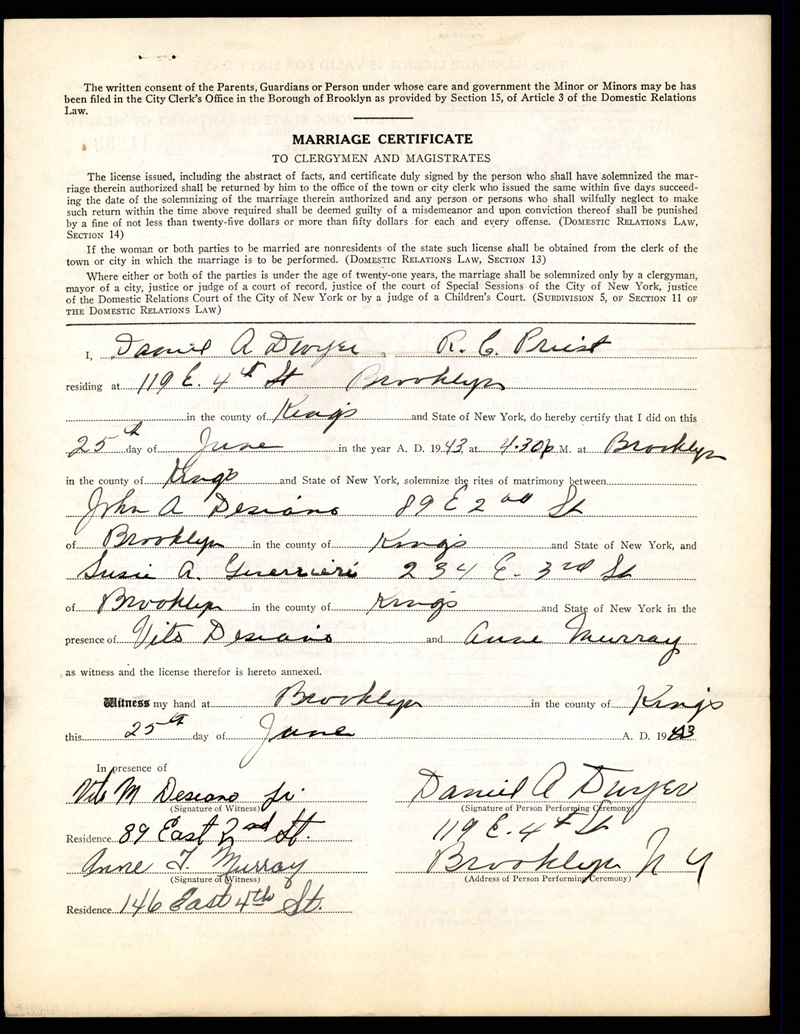 The written consent of the Parents, Guardians or Person under whose care and government the Minor or Minors may be has
been filed in the City Clerk's Office in the Borough of Brooklyn as provided by Section 15, of Article 3 of the Domestic Relations
Law.
MARRIAGE CERTIFICATE
TO CLERGYMEN AND MAGISTRATES
The license issued, including the abstract of facts, and certificate duly signed by the person who shall have solemnized the mar-
riage therein authorized shall be returned by him to the office of the town or city clerk who issued the same within five days succeed-
ing the date of the solemnizing of the marriage therein authorized and any person or persons who shall wilfully neglect to make
such return within the time above required shall be deemed guilty of a misdemeanor and upon conviction thereof shall be punished
by a fine of not less than twenty-five dollars or more than fifty dollars for each and every offense. (DOMESTIC RELATIONS LAW,
SECTION 14)
If the woman or both parties to be married are nonresidents of the state such license shall be obtained from the clerk of the
town or city in which the marriage is to be performed. (DOMESTIC RELATIONS LAW, SECTION 13)
Where either or both of the parties is under the age of twenty-one years, the marriage shall be solemnized only by a clergyman,
mayor of a city, justice or judge of a court of record, justice of the court of Special Sessions of the City of New York, justice
of the Domestic Relations Court of the City of New York or by a judge of a Children's Court. (SUBDIVISION 5, OF SECTION 11 OF
THE DOMESTIC RELATIONS LAW)
I, Daniel A Dwyer, R. C. Priest
residing at 119 E. 4th St Brooklyn
in the county of Kings and State of New York, do hereby certify that I did on this
25th day of June in the year A. D. 1943 at 4.30 p M. at Brooklyn
in the county of Kings and State of New York, solemnize the rites of matrimony between
John A Desiano 89 E 2nd St
of Brooklyn in the county of Kings and State of New York, and
Susie A. Guerrieri 234 E. 3rd St
of Brooklyn in the county of Kings and State of New York in the
presence of Vito Desiano and Anne Murray
as witness and the license therefor is hereto annexed.
Witness my hand at Brooklyn in the county of Kings
this 25th day of June A. D. 1943
In presence of
Vito M Desiano Jr. Daniel A Dwyer
(Signature of Witness) (Signature of Person Performing Ceremony)
Residence 89 East 2nd St. 119 E. 4th St
Anne T. Murray Brooklyn N Y
(Signature of Witness) (Address of Person Performing Ceremony)
Residence 146 East 4th St.